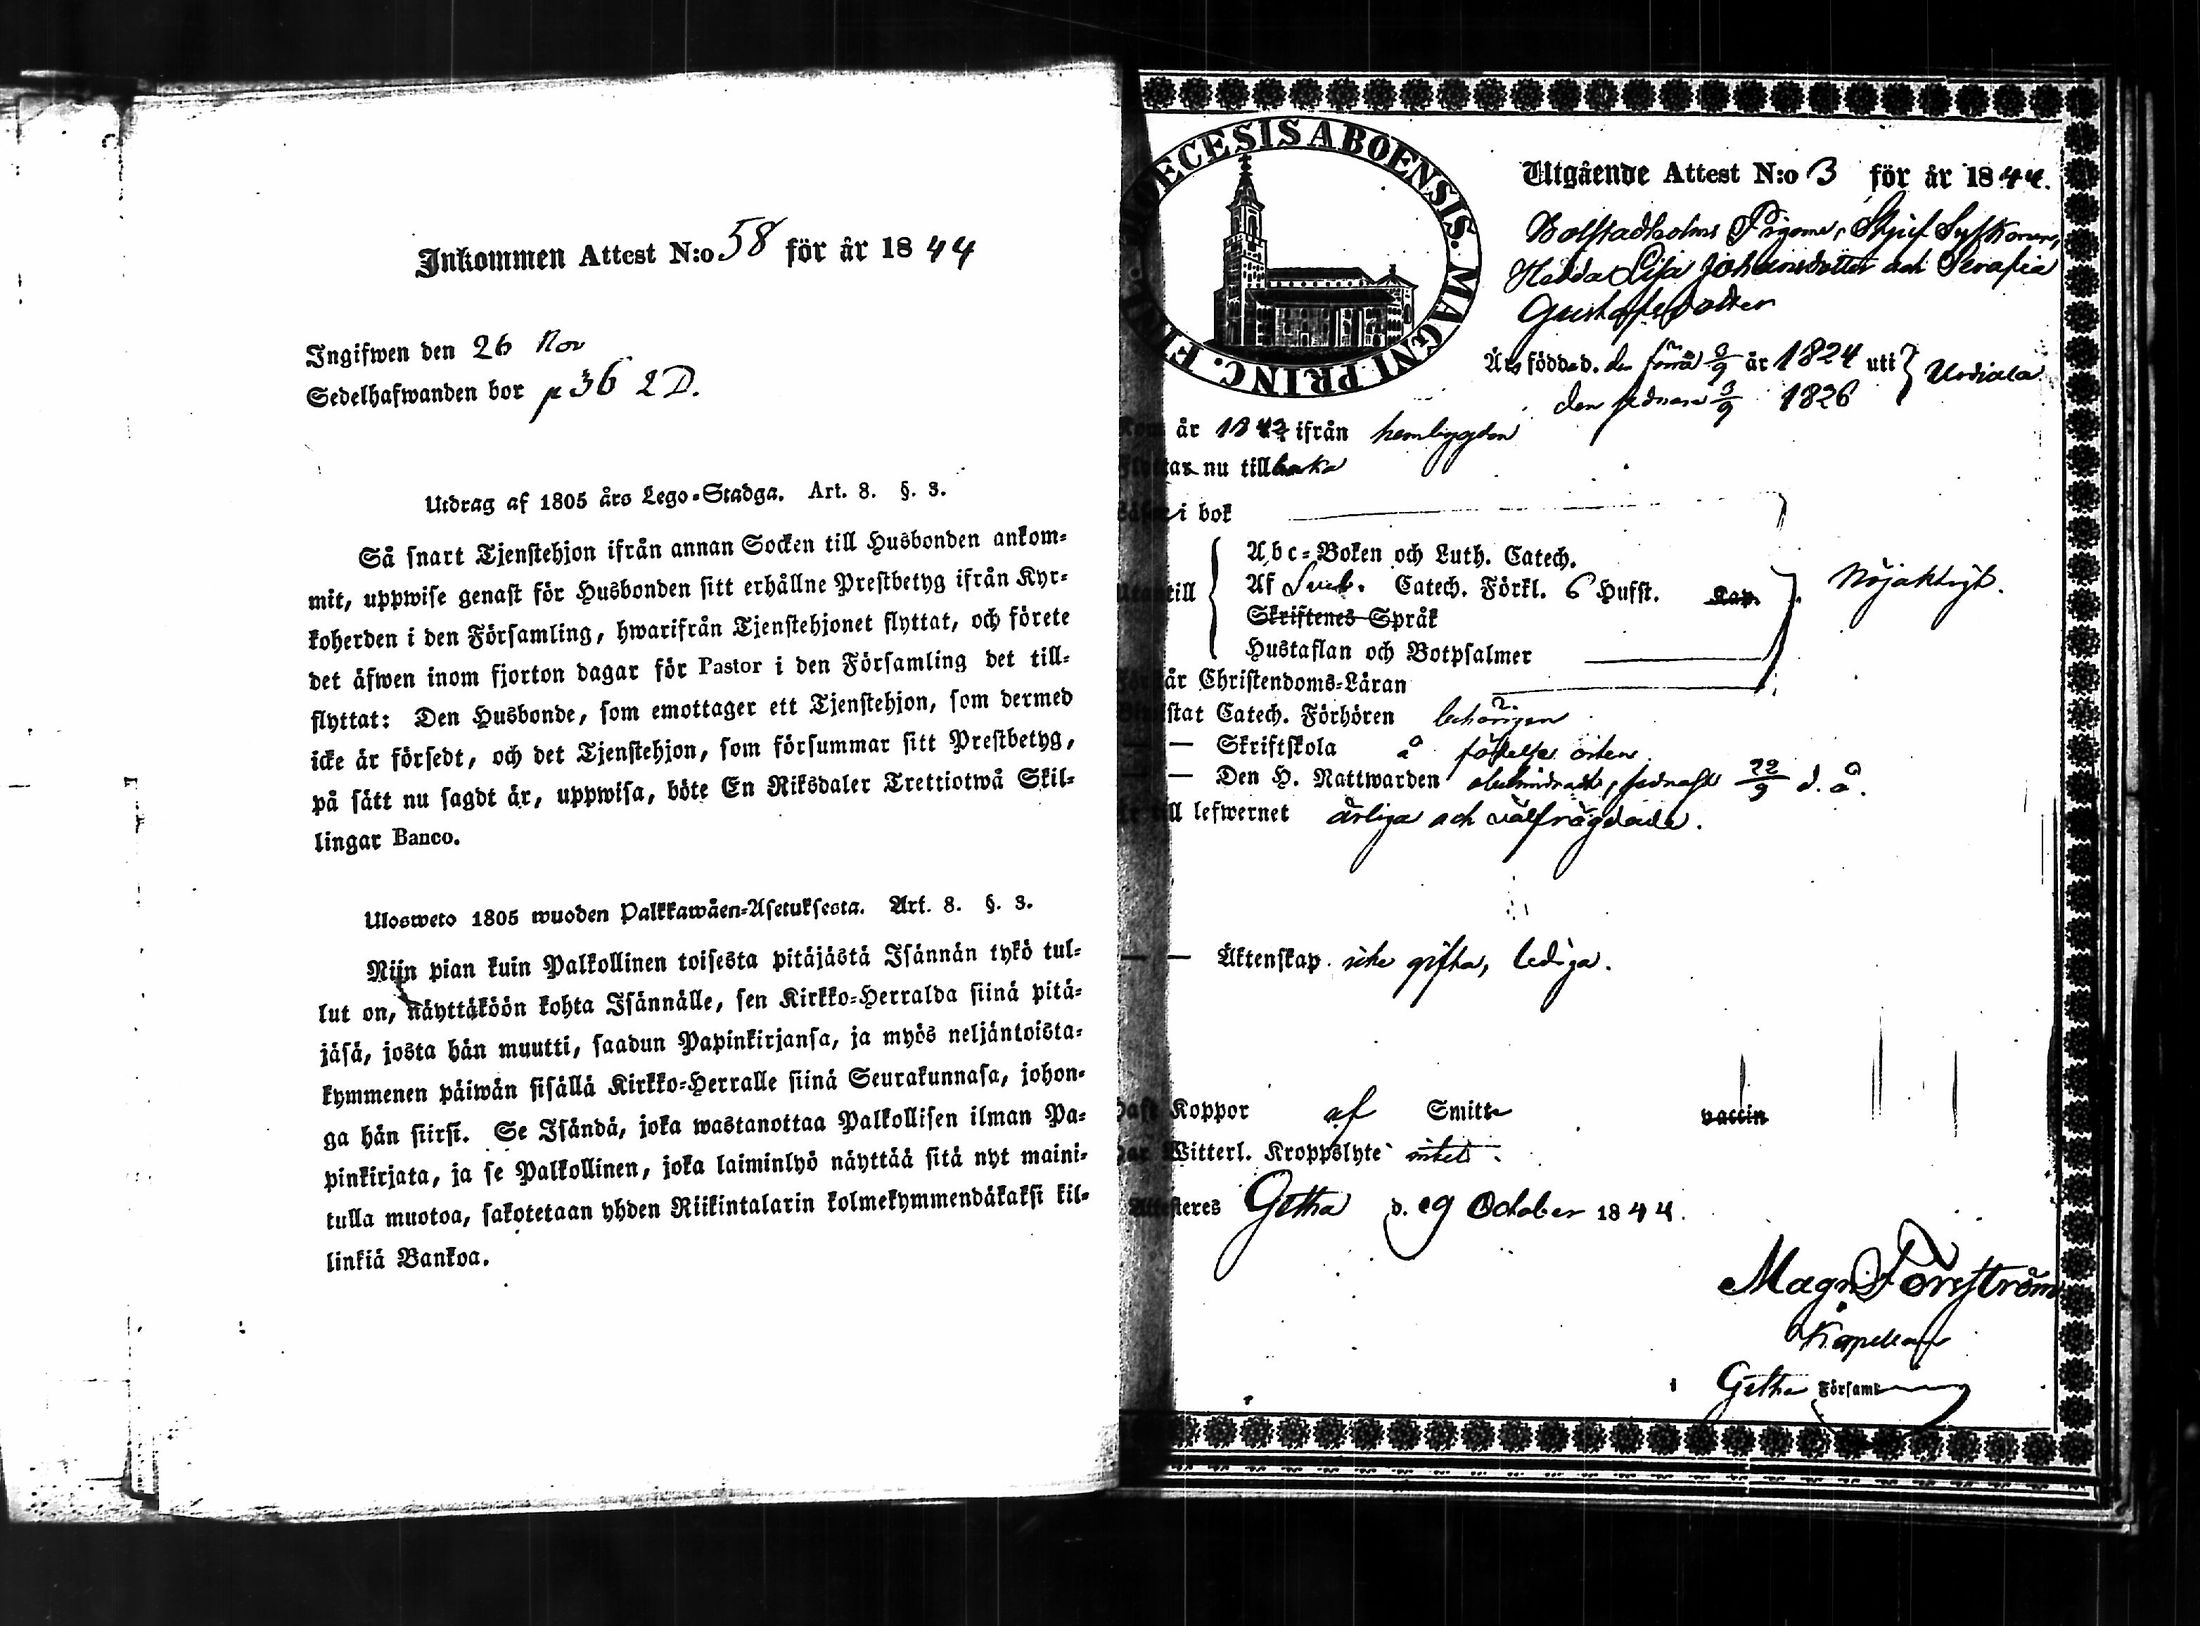 Inkommen Attest N:o 58 för år 1844
Ingifwen den 26 Nov
Sedelhafwanden bor p 36 2D.
Utdrag af 1805 års Lego-Stadga. Art. 8. §. 3.
Så snart Tjenstehjon ifrån annan Socken till Husbonden ankom-
mit, uppwise genast för Husbonden sitt erhållne Prestbetyg ifrån Kyr-
koherden i den Församling, hwarifrån Tjenstehjonet flyttat, och förete
det äfwen inom fjorton dagar för Pastor i den Församling det till-
flyttat: Den Husbonde, som emottager ett Tjenstehjon, som dermed
icke är försedt, och det Tjenstehjon, som försummar sitt Prestbetyg,
på sätt nu sagdt är, uppwisa, böte En Riksdaler Trettiotwå Skil-
lingar Banco.
Ulosweto 1805 wuoden Palkkawäen-Asetuksesta. Art. 8. §. 3.
Niin pian kuin Palkollinen toisesta pitäjästä Isännän tykö tul-
lut on, näyttäköön kohta Isännälle, sen Kirkko-Herralda siinä pitä-
jäsä, josta hän muutti, saadun Papinkirjansa, ja myös neljäntoista-
kymmenen päiwän sisällä Kirkko-Herralle siinä Seurakunnasa, johon-
ga hän siirsi. Se Isändä, joka wastanottaa Palkollisen ilman Pa-
pinkirjata, ja se Palkollinen, joka laiminlyö näyttää sitä nyt maini-
tulla muotoa, sakotetaan yhden Riikintalarin kolmekymmendäkaksi kil-
linkiä Bankoa.
DIOECESIS ABOENSIS. MAGNI PRINC. FINL.
Utgående Attest N:o 3 för år 1844.
Pigorne,
Hedda Lisa Johansdotter och Serafia
Gustafsdotter
Äro födde d. den förra 3/9 år 1824 uti } Urdiala
den sednare 3/9 1826
Kom år 1842 ifrån hembygden
Flyttar nu tillbaka
Läser i bok
Utantill { Abc-Boken och Luth. Catech.
Af Sweb. Catech. Förkl. 6 Hufst. Kap. } Nöjaktigt.
Skriftenes Språk
Hustaflan och Botpsalmer
Förstår Christendoms-Läran
Biwistat Catech. Förhören behörigen
— — Skriftskola å födelse orten
— — Den H. Nattwarden obehindradt, sednast 22/9 d. å.
Är till lefwernet ärliga och välfrägdade.
— — Äktenskap icke gifta, lediga.
Haft Koppor af Smitta vaccin
Har Witterl. Kroppslyte intet.
Attesteres Getha d. 29 October 1844.
Magn. Forsström
Kapellan
i Getha Församl